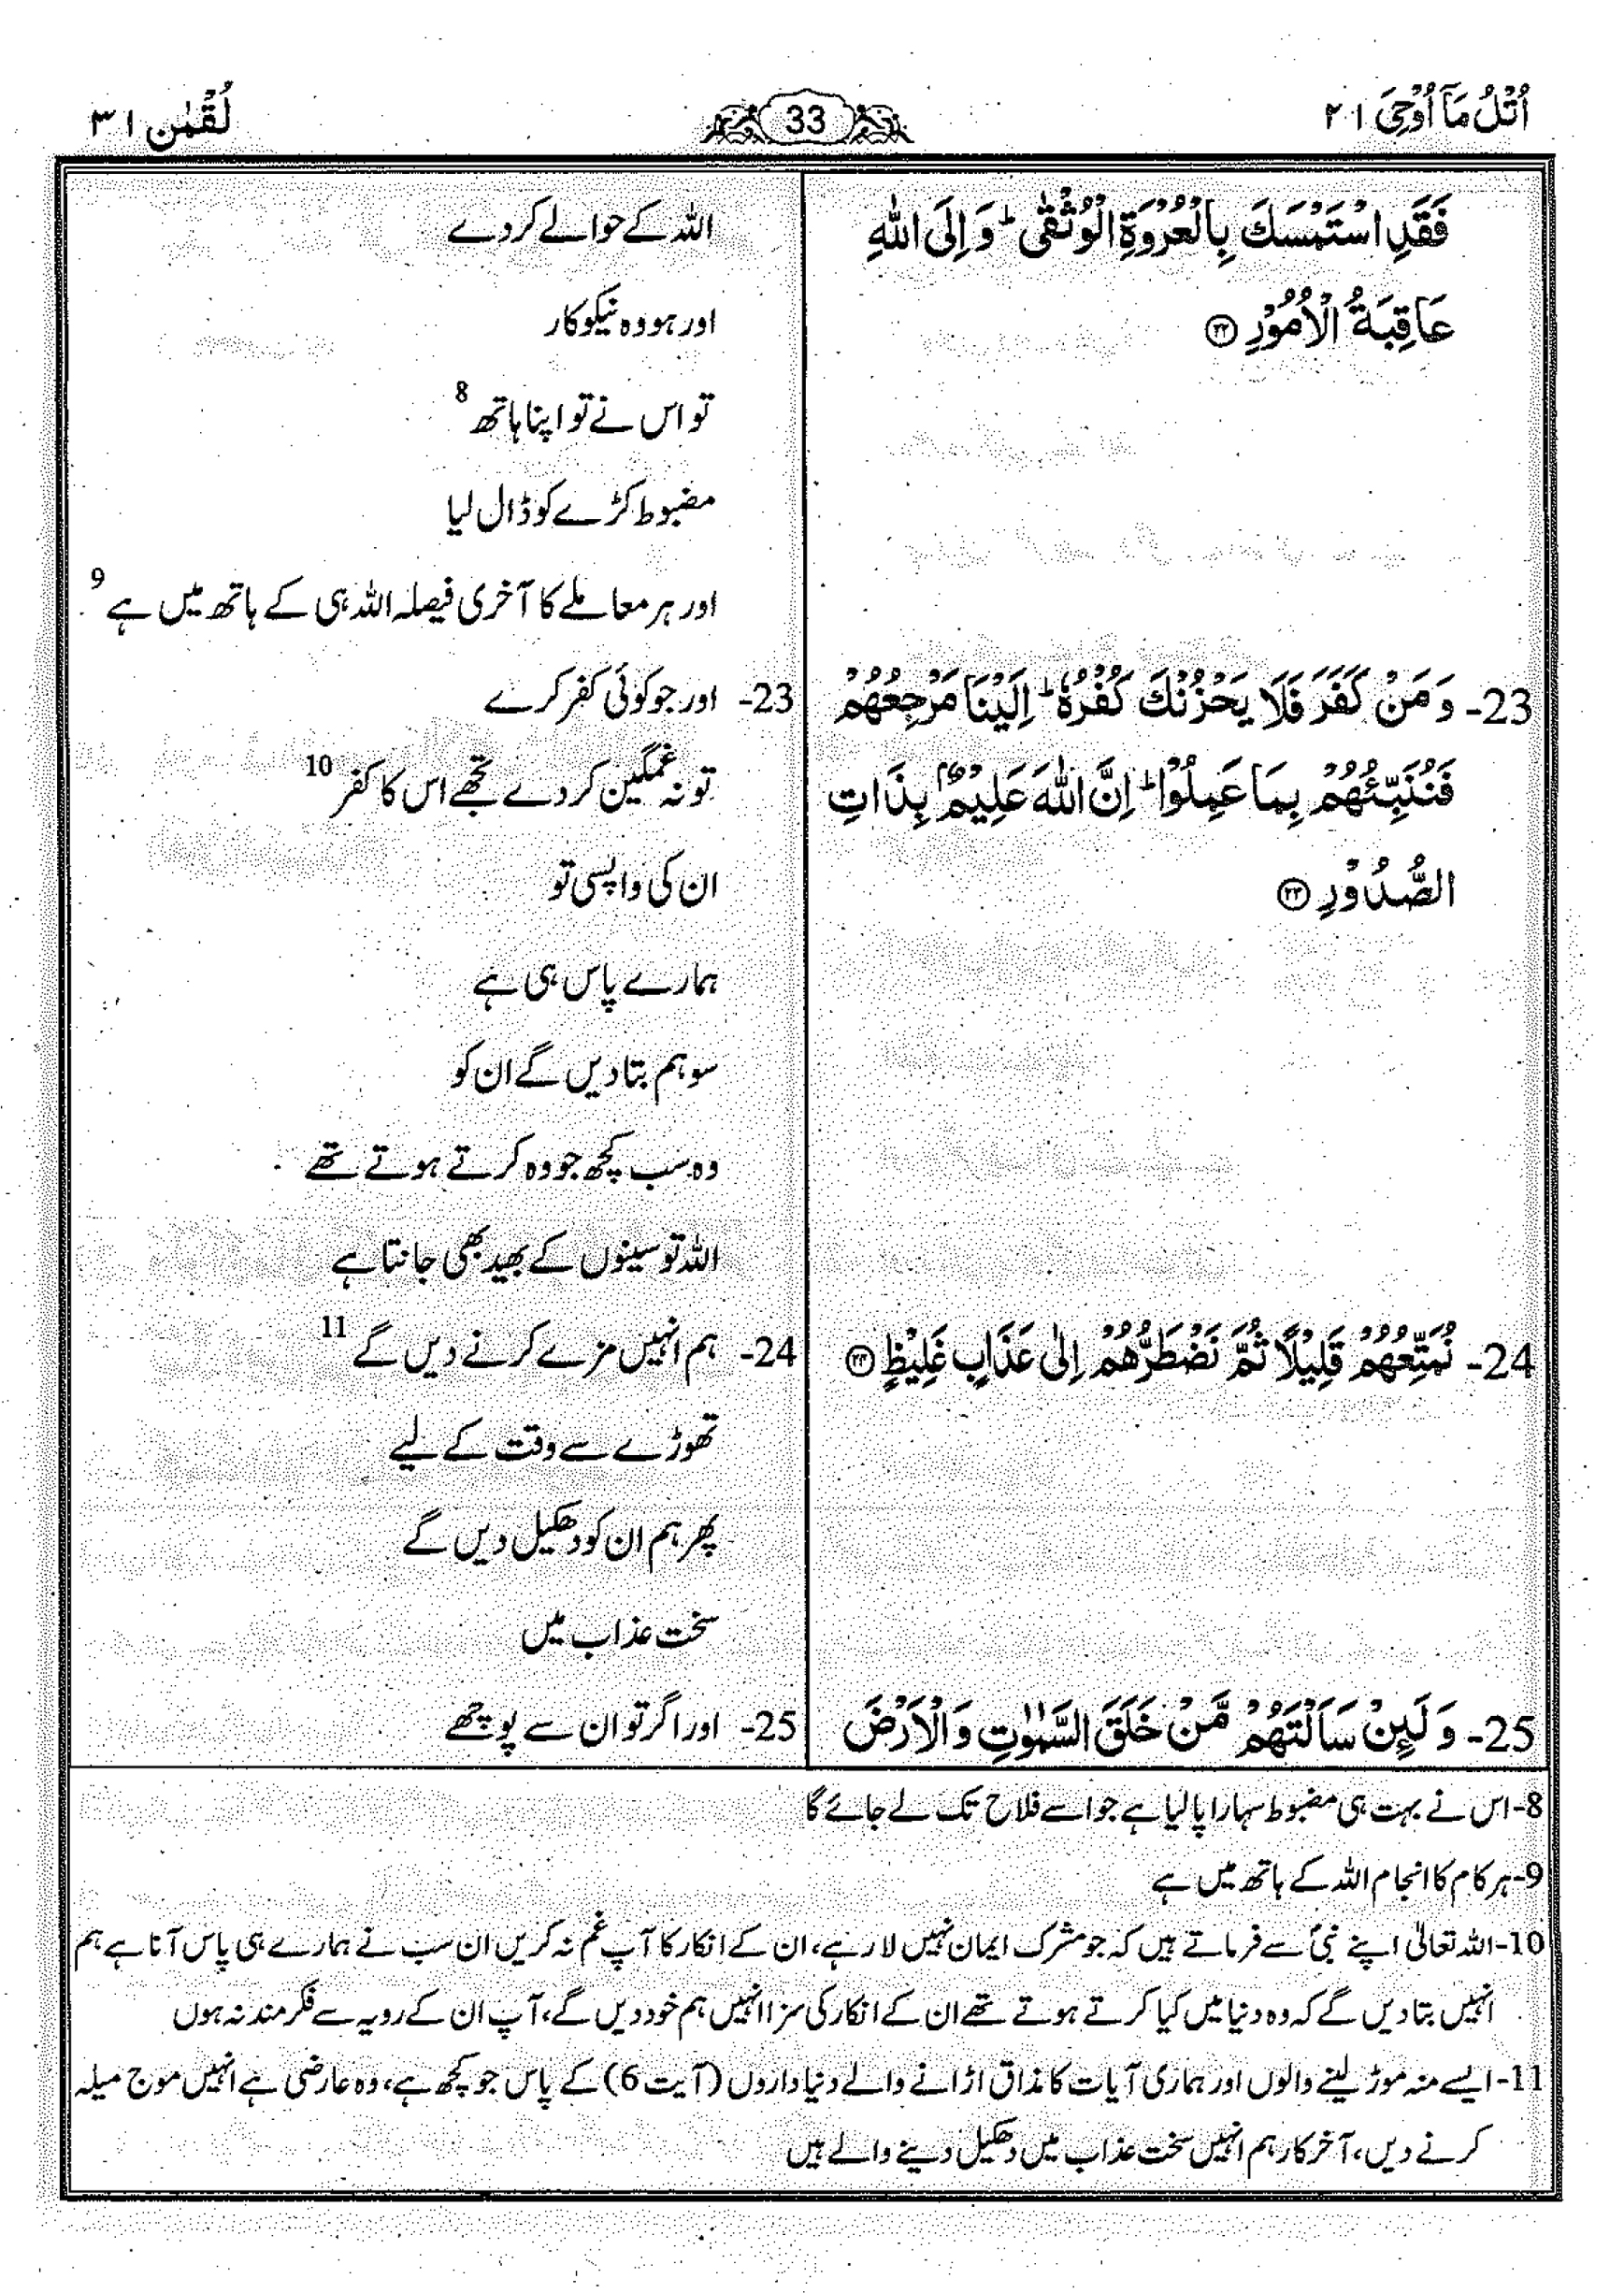 اُتْلُ مَآ اُوْحِیَ ۲۱
33
لُقْمٰن ۳۱
فَقَدِ اسْتَمْسَكَ بِالْعُرْوَةِ الْوُثْقٰى ؕ وَ اِلَى اللّٰهِ
عَاقِبَةُ الْاُمُوْرِ ﴿۲۲﴾
23- وَ مَنْ كَفَرَ فَلَا يَحْزُنْكَ كُفْرُهٗ ؕ اِلَيْنَا مَرْجِعُهُمْ
فَنُنَبِّئُهُمْ بِمَا عَمِلُوْا ؕ اِنَّ اللّٰهَ عَلِيْمٌۢ بِذَاتِ
الصُّدُوْرِ ﴿۲۳﴾
24- نُمَتِّعُهُمْ قَلِيْلًا ثُمَّ نَضْطَرُّهُمْ اِلٰى عَذَابٍ غَلِيْظٍ ﴿۲۴﴾
25- وَ لَىِٕنْ سَاَلْتَهُمْ مَّنْ خَلَقَ السَّمٰوٰتِ وَ الْاَرْضَ
اللہ کے حوالے کردے
اور ہو وہ نیکو کار
تو اس نے تو اپنا ہاتھ 8
مضبوط کڑے کو ڈال لیا
اور ہر معاملے کا آخری فیصلہ اللہ ہی کے ہاتھ میں ہے 9
23- اور جو کوئی کفر کرے
تو نہ غمگین کردے تجھے اس کا کفر 10
ان کی واپسی تو
ہمارے پاس ہی ہے
سو ہم بتا دیں گے ان کو
وہ سب کچھ جو وہ کرتے ہوتے تھے
اللہ تو سینوں کے بھید بھی جانتا ہے
24- ہم انہیں مزے کرنے دیں گے 11
تھوڑے سے وقت کے لیے
پھر ہم ان کو دھکیل دیں گے
سخت عذاب میں
25- اور اگر تو ان سے پوچھے
8-اس نے بہت ہی مضبوط سہارا پا لیا ہے جو اسے فلاح تک لے جائے گا
9-ہر کام کا انجام اللہ کے ہاتھ میں ہے
10-اللہ تعالیٰ اپنے نبیؐ سے فرماتے ہیں کہ جو مشرک ایمان نہیں لا رہے، ان کے انکار کا آپ غم نہ کریں ان سب نے ہمارے ہی پاس آنا ہے ہم
انہیں بتا دیں گے کہ وہ دنیا میں کیا کرتے ہوتے تھے ان کے انکار کی سزا انہیں ہم خود دیں گے، آپ ان کے رویہ سے فکر مند نہ ہوں
11-ایسے منہ موڑ لینے والوں اور ہماری آیات کا مذاق اڑانے والے دنیا داروں (آیت 6) کے پاس جو کچھ ہے، وہ عارضی ہے انہیں موج میلہ
کرنے دیں، آخر کار ہم انہیں سخت عذاب میں دھکیل دینے والے ہیں